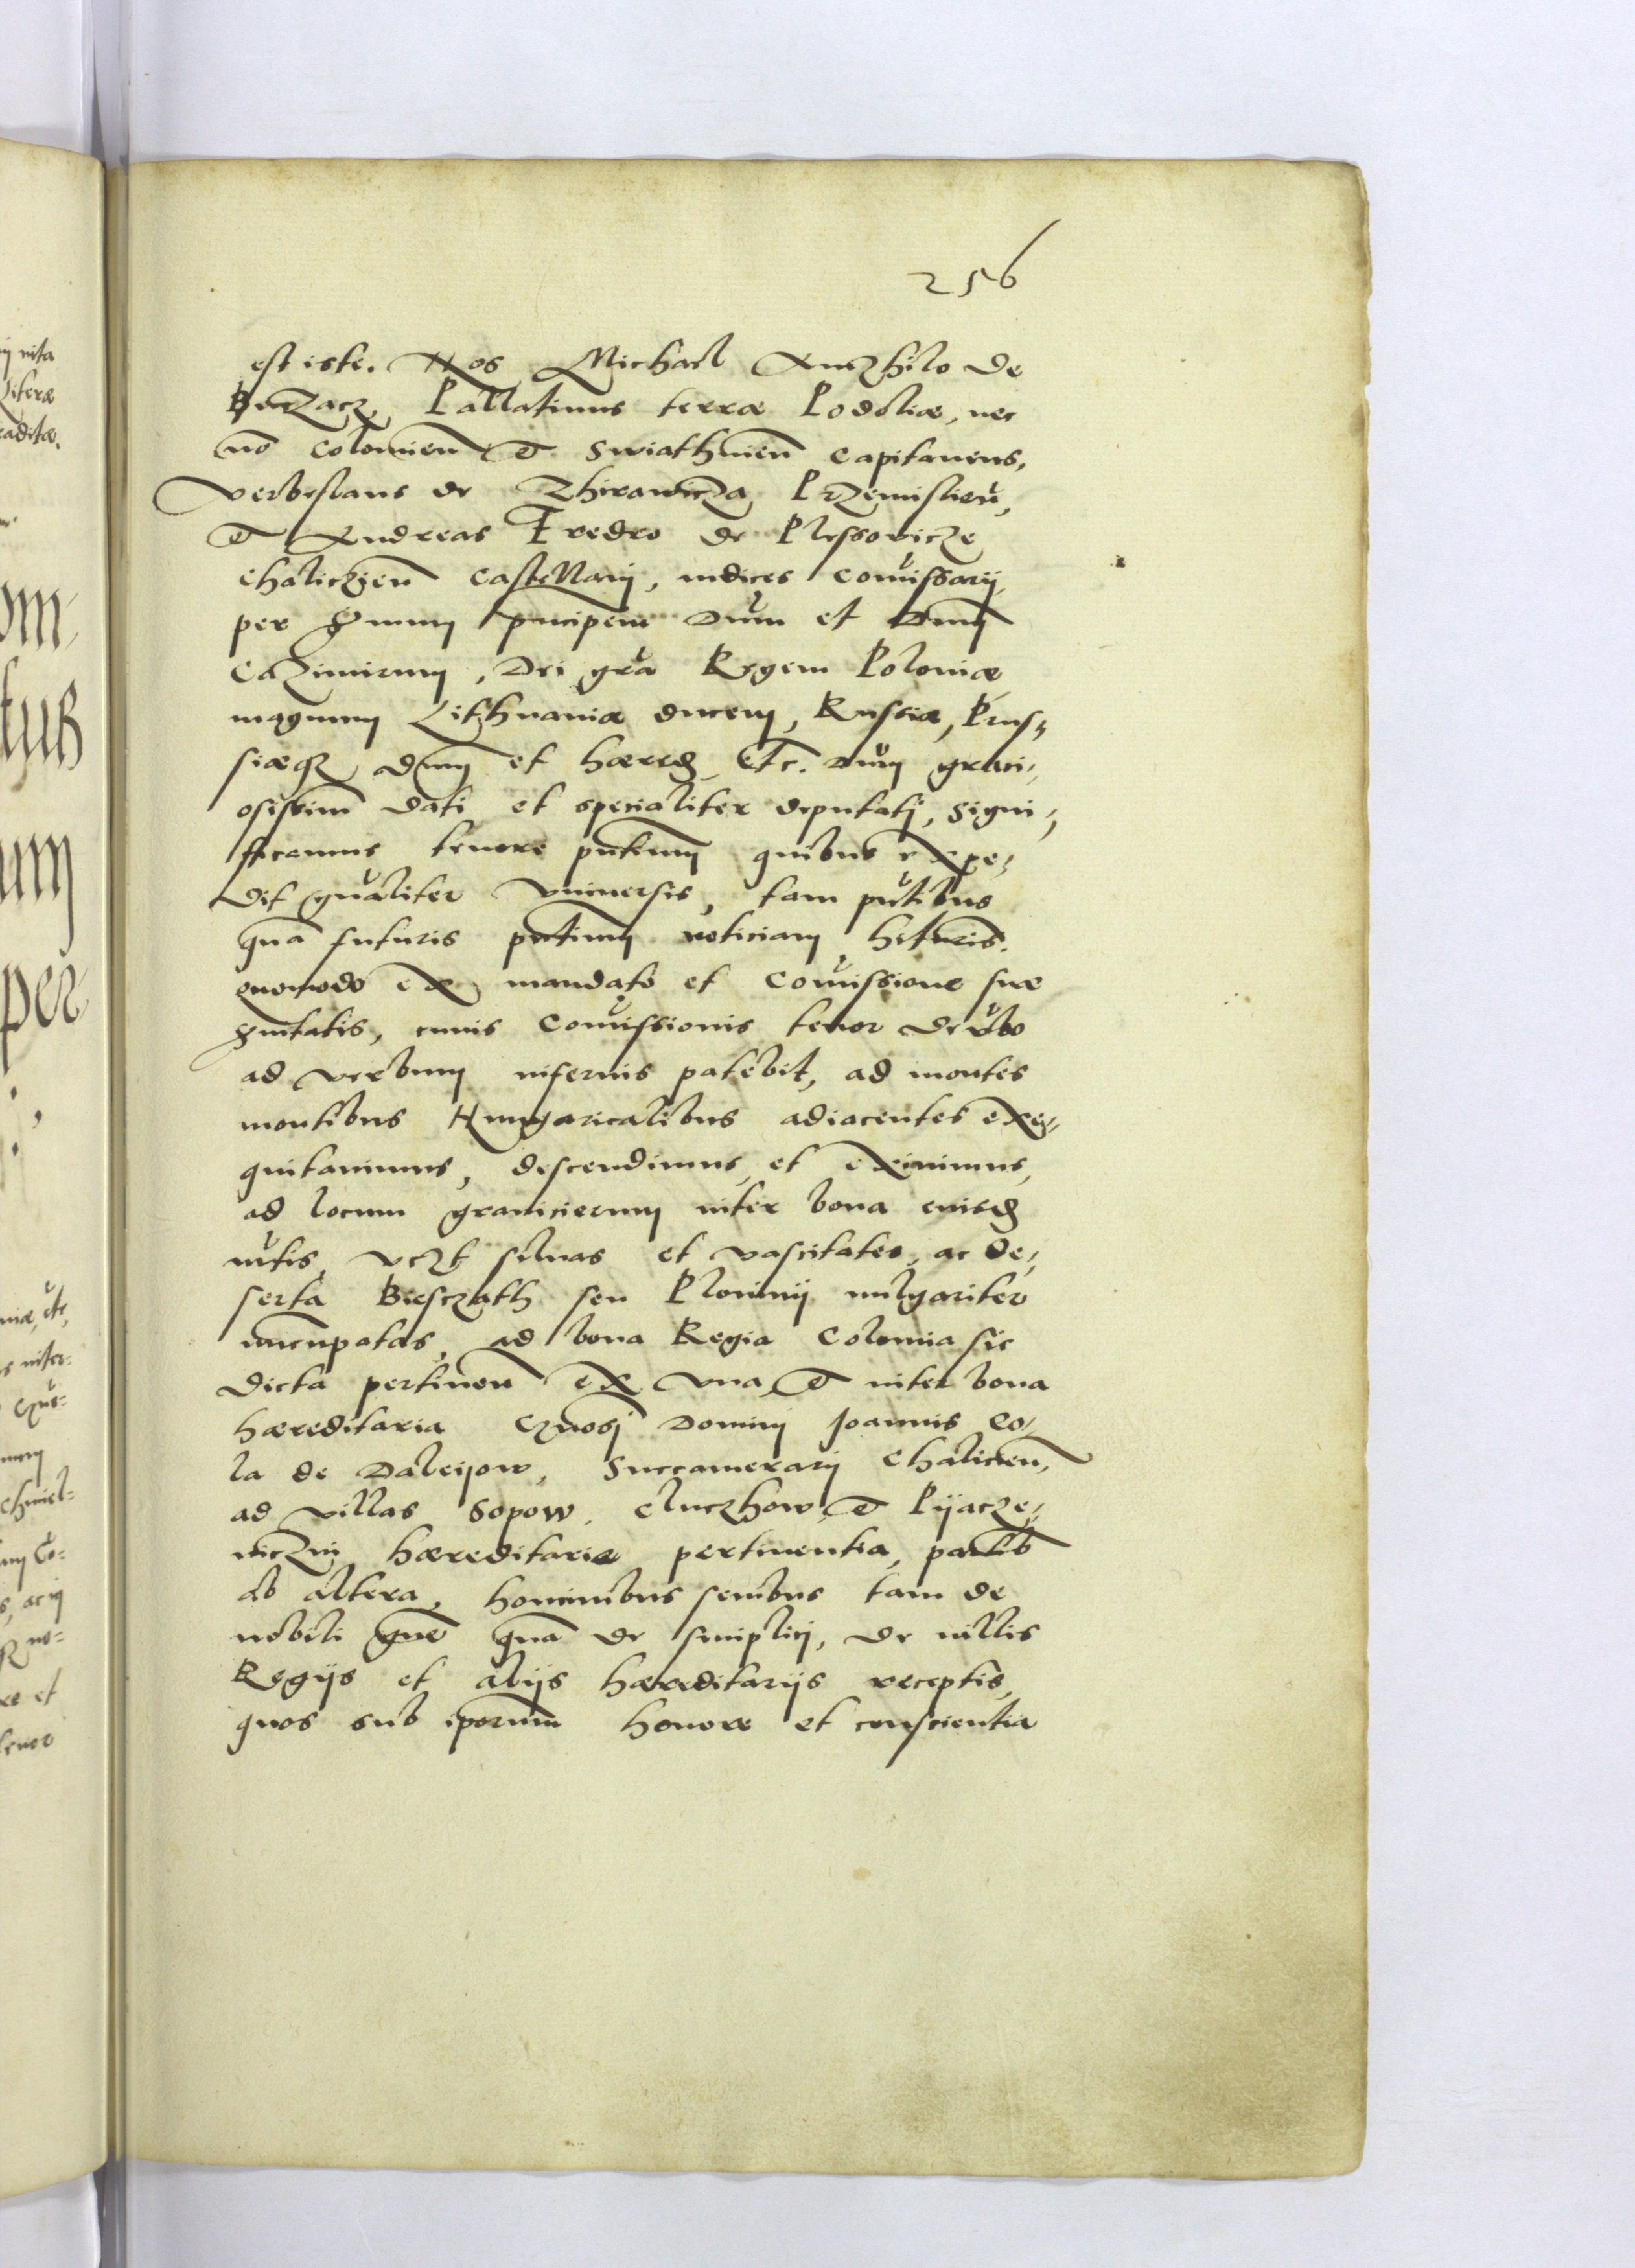 256
est iste. Nos Michael Muzhilo de
Buczacz, Pallatinus terræ Podoliæ, nec
nō Colomien̄ et Swiathnien̄ Capitaneus,
de Zhirawicza Przemislien̄,
et Andreas Fredro de Plessovicze
Chalicżien̄ Castellanj, iudices Com̄issarij,
per Sr̄mum principem Dnūm et Dnm̄
Cazimirum, Dei grā Regem Poloniæ
magnum Lithuaniæ ducem, Russiæ, Prus,
siæq dnm̄ et hæred, etc. dnm̄ graci,
osissim̄ dati et specialiter deputatj, Signi,
ficamus tenore pn̄tium quibus expe,
dit qūaliter vniuersis, tam pn̄tibus
quā futuris pn̄tium noticiam hituris.
quomodo ex mandato et Com̄issione suæ
Srn̄itatis, cuius Com̄issionis tenor de v̄bo
ad verbum inferius patebit, ad montes
montibus Hungaricalibus adiacentes exe,
quitauimus, descendimus et exiuimus,
ad locum granicierum inter bona eiusd
silvas et vascitates, ac de,
serta Biesczath seu Ploniny vulgariter
nuncupatas, ad bona Regia Colomia sic
dicta pertinen̄ ex vna, et inter bona
hæreditaria gn̄osj Dominj Joannis Co,
la de Daleijow, Succamerarij Chalicien̄,
ad villas Sopow, Cluczhow, et Pijacze,
niczinj hæreditarie pertinentia, partib
ab altera, hominibus senibus tam de
nobili gn̄e quā de simplicj, de villis
Regijs et alijs hæreditarijs receptis,
quos sub ip̄orum honore et conscientia